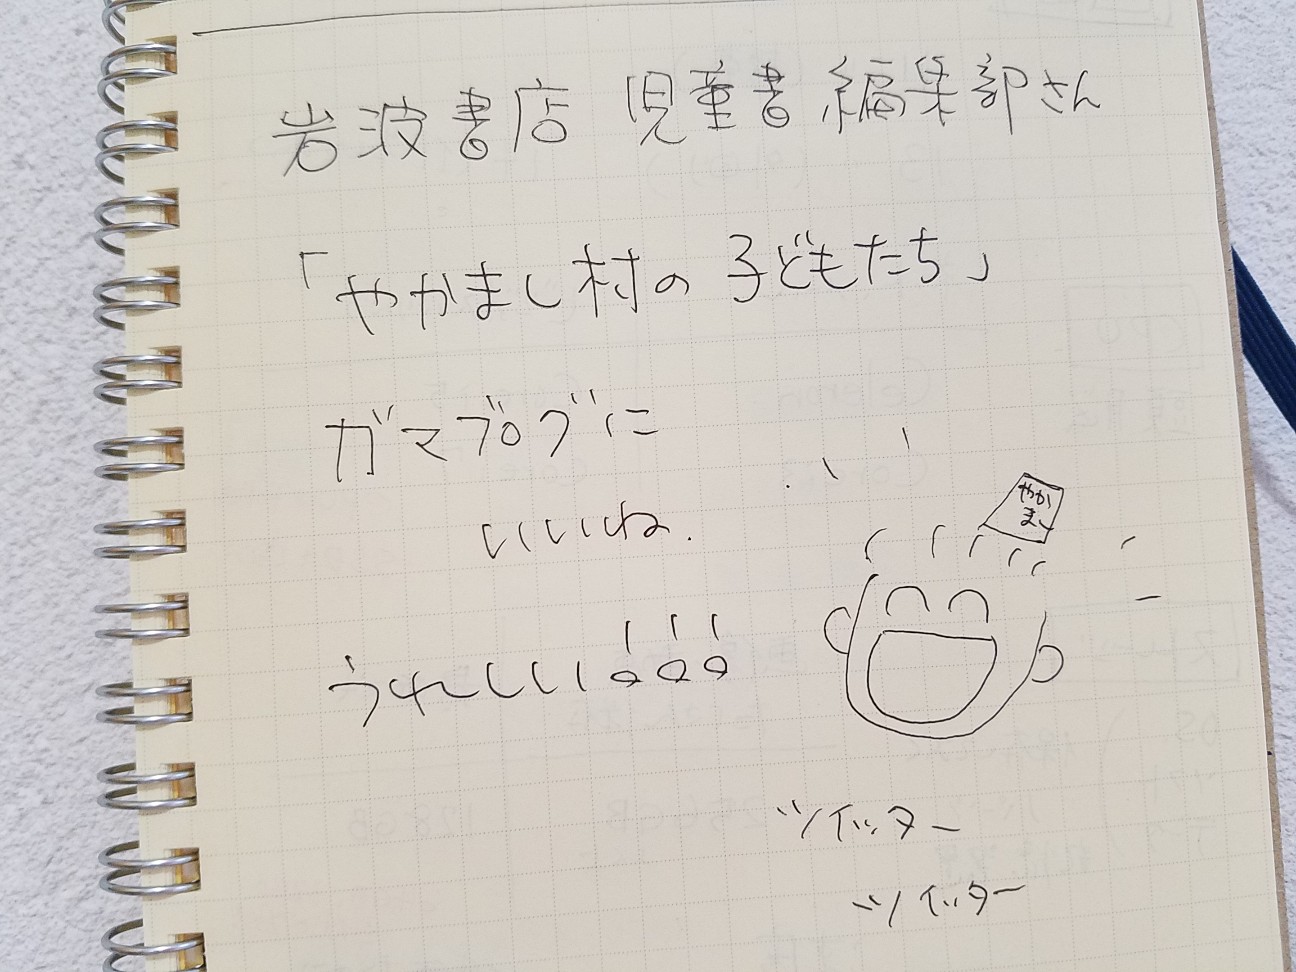 岩波書店 児童書編集部さん
「やかまし村の子どもたち」
ガマブログに
いいね.
やか
まし
うれしいい!!!
ツイッター
ツイッター